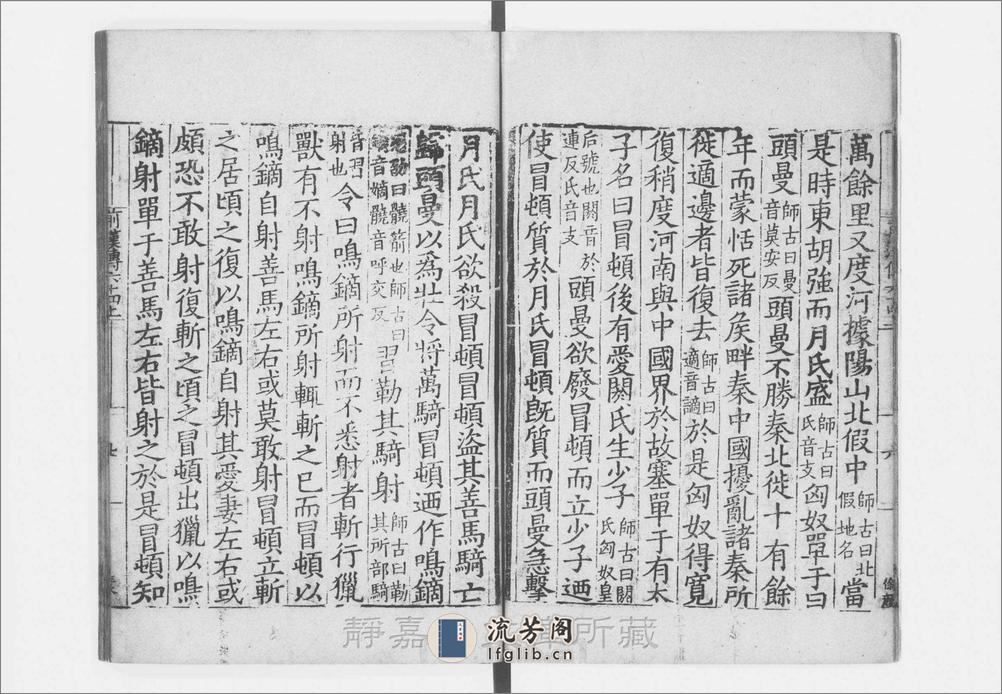 萬餘里又度河據陽山北假中師古曰北假地名當
是時東胡強而月氏盛師古曰氏音支匈奴單于曰
頭曼師古曰曼音莫安反頭曼不勝秦北徙十有餘
年而蒙恬死諸矦畔秦中國擾亂諸秦所
徙適邊者皆復去師古曰適音讁於是匈奴得寬
復稍度河南與中國界於故塞單于有太
子名曰冒頓後有愛閼氏生少子師古曰閼氏匈奴皇
后號也閼音於連反氏音支頭曼欲廢冒頓而立少子迺
使冒頓質於月氏冒頓旣質而頭曼急擊
月氏月氏欲殺冒頓冒頓盜其善馬騎亡
歸頭曼以爲壯令將萬騎冒頓迺作鳴鏑
劭曰髐箭也師古曰鏑音嫡髐音呼交反習勒其騎射師古曰勒其所部騎
皆習射也令曰鳴鏑所射而不悉射者斬行獵
獸有不射鳴鏑所射輒斬之已而冒頓以
鳴鏑自射善馬左右或莫敢射冒頓立斬
之居頃之復以鳴鏑自射其愛妻左右或
頗恐不敢射復斬之頃之冒頓出獵以鳴
鏑射單于善馬左右皆射之於是冒頓知
前漢傳六十四上
七
六
靜嘉所藏
流芳阁
lfglib.cn